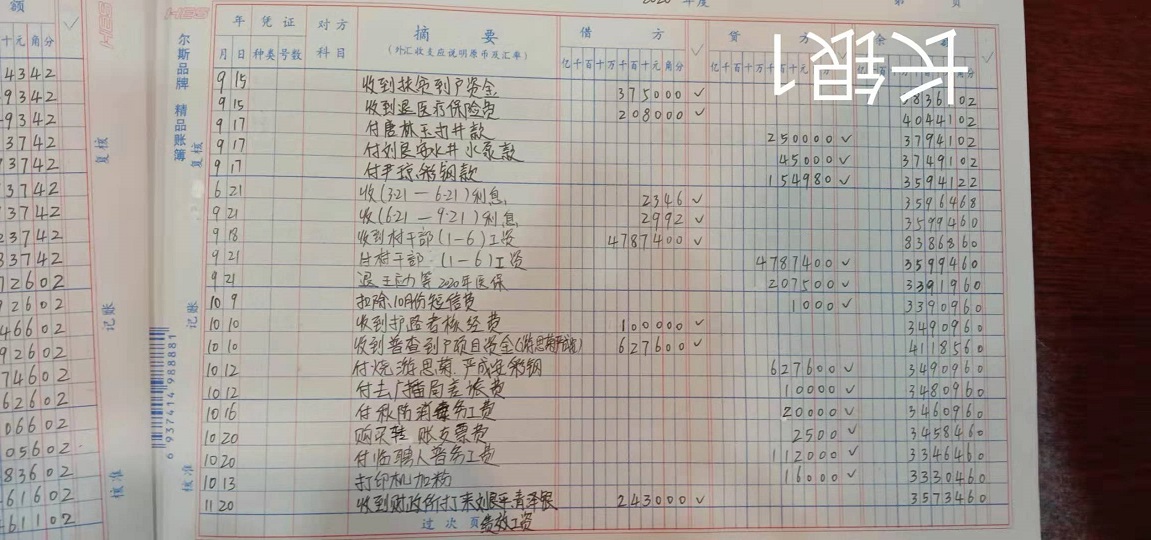 额
十元角分
4342
9342
-9342
3742
3742
3742
3742
23742
33742
72602
72602
46602
92602
74602
62602
06602
05602
83602
-61602
-61102
HERS
复核
记账
核准
HERS
尔斯品牌 精品账簿
复核
记账
核准
6 937414 988881
2020 年度 第 页
年 凭证 对方 摘要 借方 ✓ 贷方 余额 ✓
月 日 种类 号数 科目 (外汇收支应说明原币及汇率) 亿千百十万千百十元角分 亿千百十万千百十元角分
长银1
9 15 收到扶贫到户资金 375000 ✓ 3836102
9 15 收到退医疗保险费 208000 ✓ 4044102
9 17 付唐林玉打井款 250000 ✓ 3794102
9 17 付刘良 水井水泵款 45000 ✓ 3749102
9 17 付尹 彩钢款 154980 ✓ 3594122
6 21 收(321—6.21)利息 2346 ✓ 3596468
9 21 收(6.21—9.21)利息 2992 ✓ 3599460
9 18 收到村干部(1-6)工资 4787400 ✓ 8386860
9 21 付村干部(1-6)工资 4787400 ✓ 3599460
9 21 退王 等2020年医保 207500 ✓ 3391960
10 9 扣除10月份短信费 1000 ✓ 3390960
10 10 收到护路者 经费 100000 ✓ 3490960
10 10 收到普查到户项目资金( ) 627600 ✓ 4118560
10 12 付 游思菊.严成 彩钢 627600 ✓ 3490960
10 12 付去广播局差旅费 10000 ✓ 3480960
10 16 付秋防消毒务工费 20000 ✓ 3460960
10 20 购买转账支票费 2500 ✓ 3458460
10 20 付临聘人普务工费 112000 ✓ 3346460
10 13 打印机加粉 16000 ✓ 3330460
11 20 收到财政所打来刘良 青泽银 243000 ✓ 3573460
过次页 绩效工资